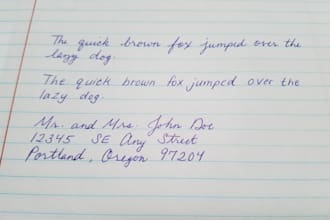 The quick brown fox jumped over the
lazy dog.
The quick brown fox jumped over the
lazy dog.
Mr. and Mrs. John Doe
12345 SE Any Street
Portland, Oregon 97204